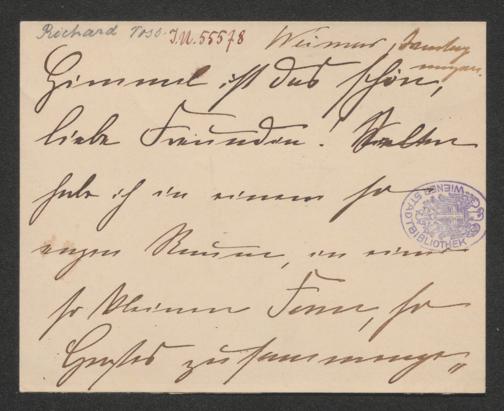 Richard Voss. I.N. 55578
Weimar, Samstag
morgen.
Himmel ist das schön,
liebe Freundin! Selten
habe ich in einem so
engen Raume, in einer
so kleinen Form, so
Großes zusammenge„
WIENER STADTBIBLIOTHEK